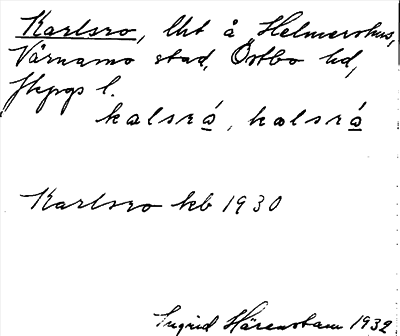 Karlsro, lht å Helmershus,
Värnamo stad, Östbo hd,
Jkpgs l.
kalsró, kalsró
Karlsro kb 1930
Ingrid Härenstam 1932